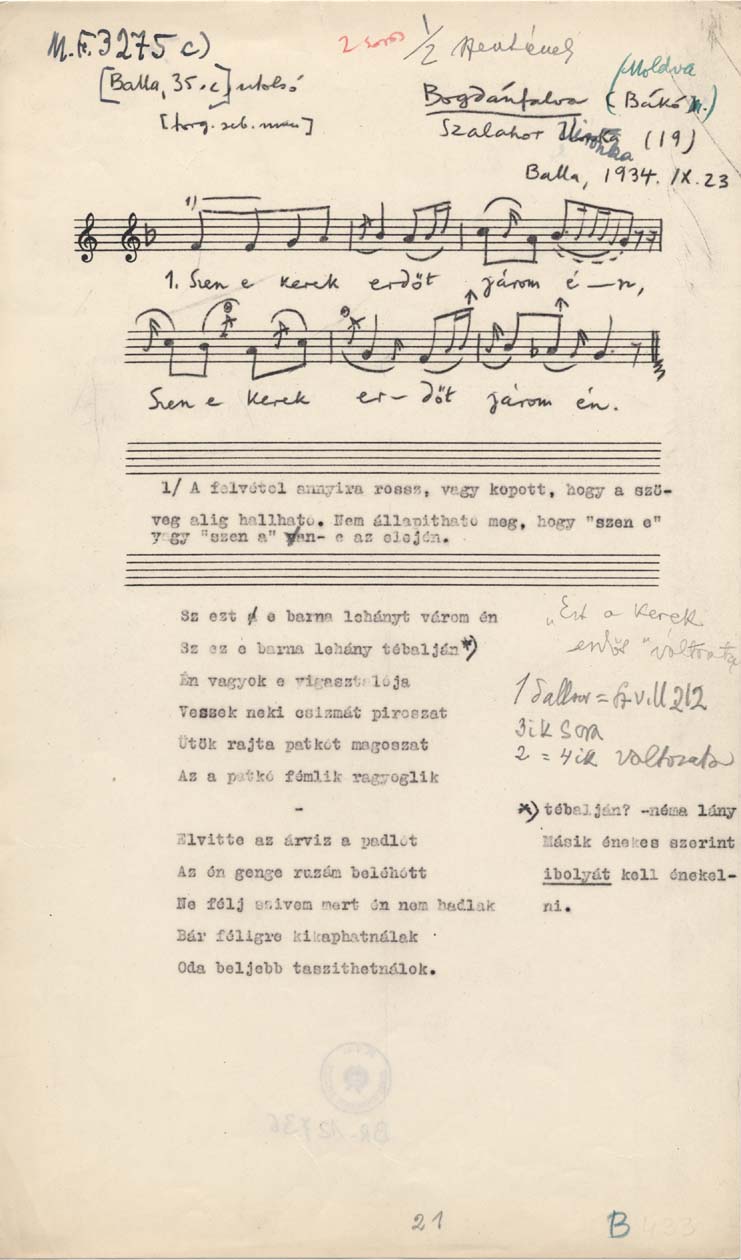 M.F. 3275 c)
2 soros 1/2
[Balla, 35.c] utolsó
Moldva
Bogdánfalva (Bákó m.)
Szalahor Ilonka (19)
Balla, 1934. IX. 23
1)
1. Szen e kerek erdőt járom é—n,
Szen e kerek er-dőt járom én.
1/ A felvétel annyira rossz, vagy kopott, hogy a szö-
veg alig hallható. Nem állapitható meg, hogy "szen e"
vagy "szen a" van- e az elején.
Sz ezt e barna lehányt várom én
Sz ez e barna lehány tébalján*)
Én vagyok e vigasztalója
Veszek neki csizmát piroszat
Ütök rajta patkót magoszat
Az a patkó fémlik ragyoglik
-
Elvitte az árviz a padlót
Az én genge ruzám beléhótt
Ne félj szivem mert én nem hadlak
Bár féligre kikaphatnálak
Oda beljebb taszithetnálok.
"Ezt a kerek
erdőt" változata
1 dallam = Sz.V.II 212
3ik sora
2 = 4ik változata
*) tébalján? -néma lány
Másik énekes szerint
ibolyát kell énekel-
ni.
BR-12736
21
B 433